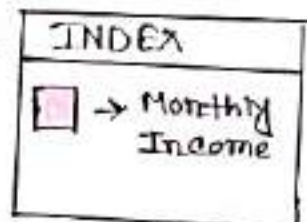 INDEX
→ Monthly
Income